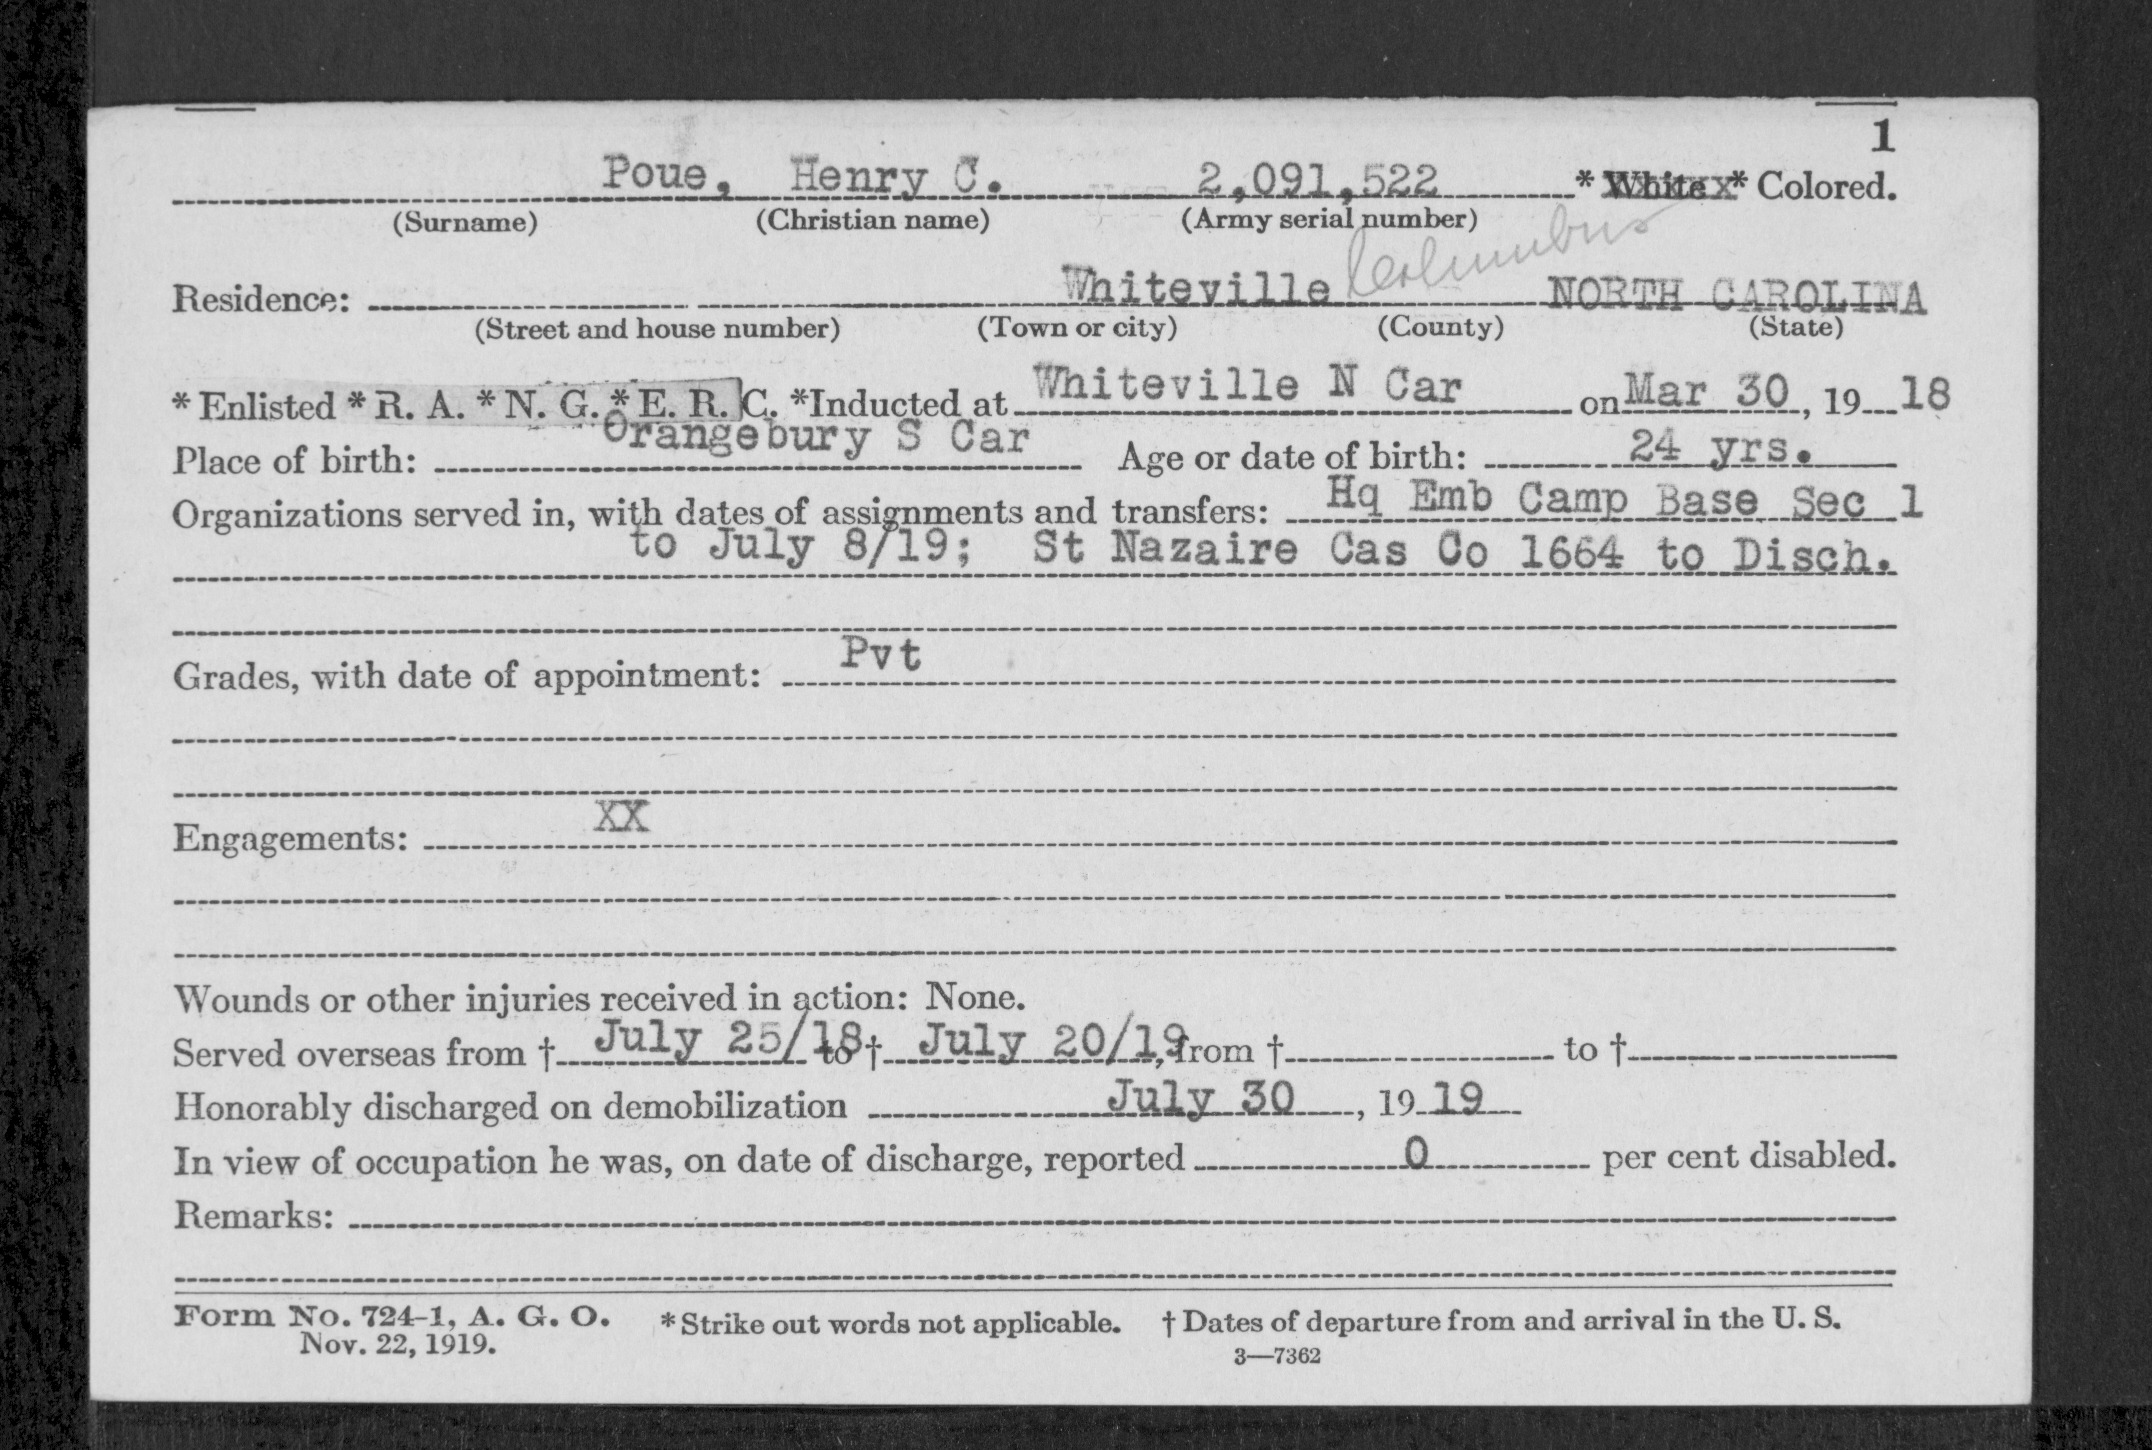 1
Poue, Henry C. 2,091,522 * White * Colored.
(Surname) (Christian name) (Army serial number)
Residence: Whiteville Columbus NORTH CAROLINA
(Street and house number) (Town or city) (County) (State)
* Enlisted * R. A. * N. G. * E. R. C. *Inducted at Whiteville N Car on Mar 30, 19 18
Place of birth: Orangebury S Car Age or date of birth: 24 yrs.
Organizations served in, with dates of assignments and transfers: Hq Emb Camp Base Sec 1
to July 8/19; St Nazaire Cas Co 1664 to Disch.
Grades, with date of appointment: Pvt
Engagements: XX
Wounds or other injuries received in action: None.
Served overseas from † July 25/18 to † July 20/19, from † to †
Honorably discharged on demobilization July 30, 19 19
In view of occupation he was, on date of discharge, reported 0 per cent disabled.
Remarks:
Form No. 724-1, A. G. O. * Strike out words not applicable. † Dates of departure from and arrival in the U. S.
Nov. 22, 1919. 3—7362